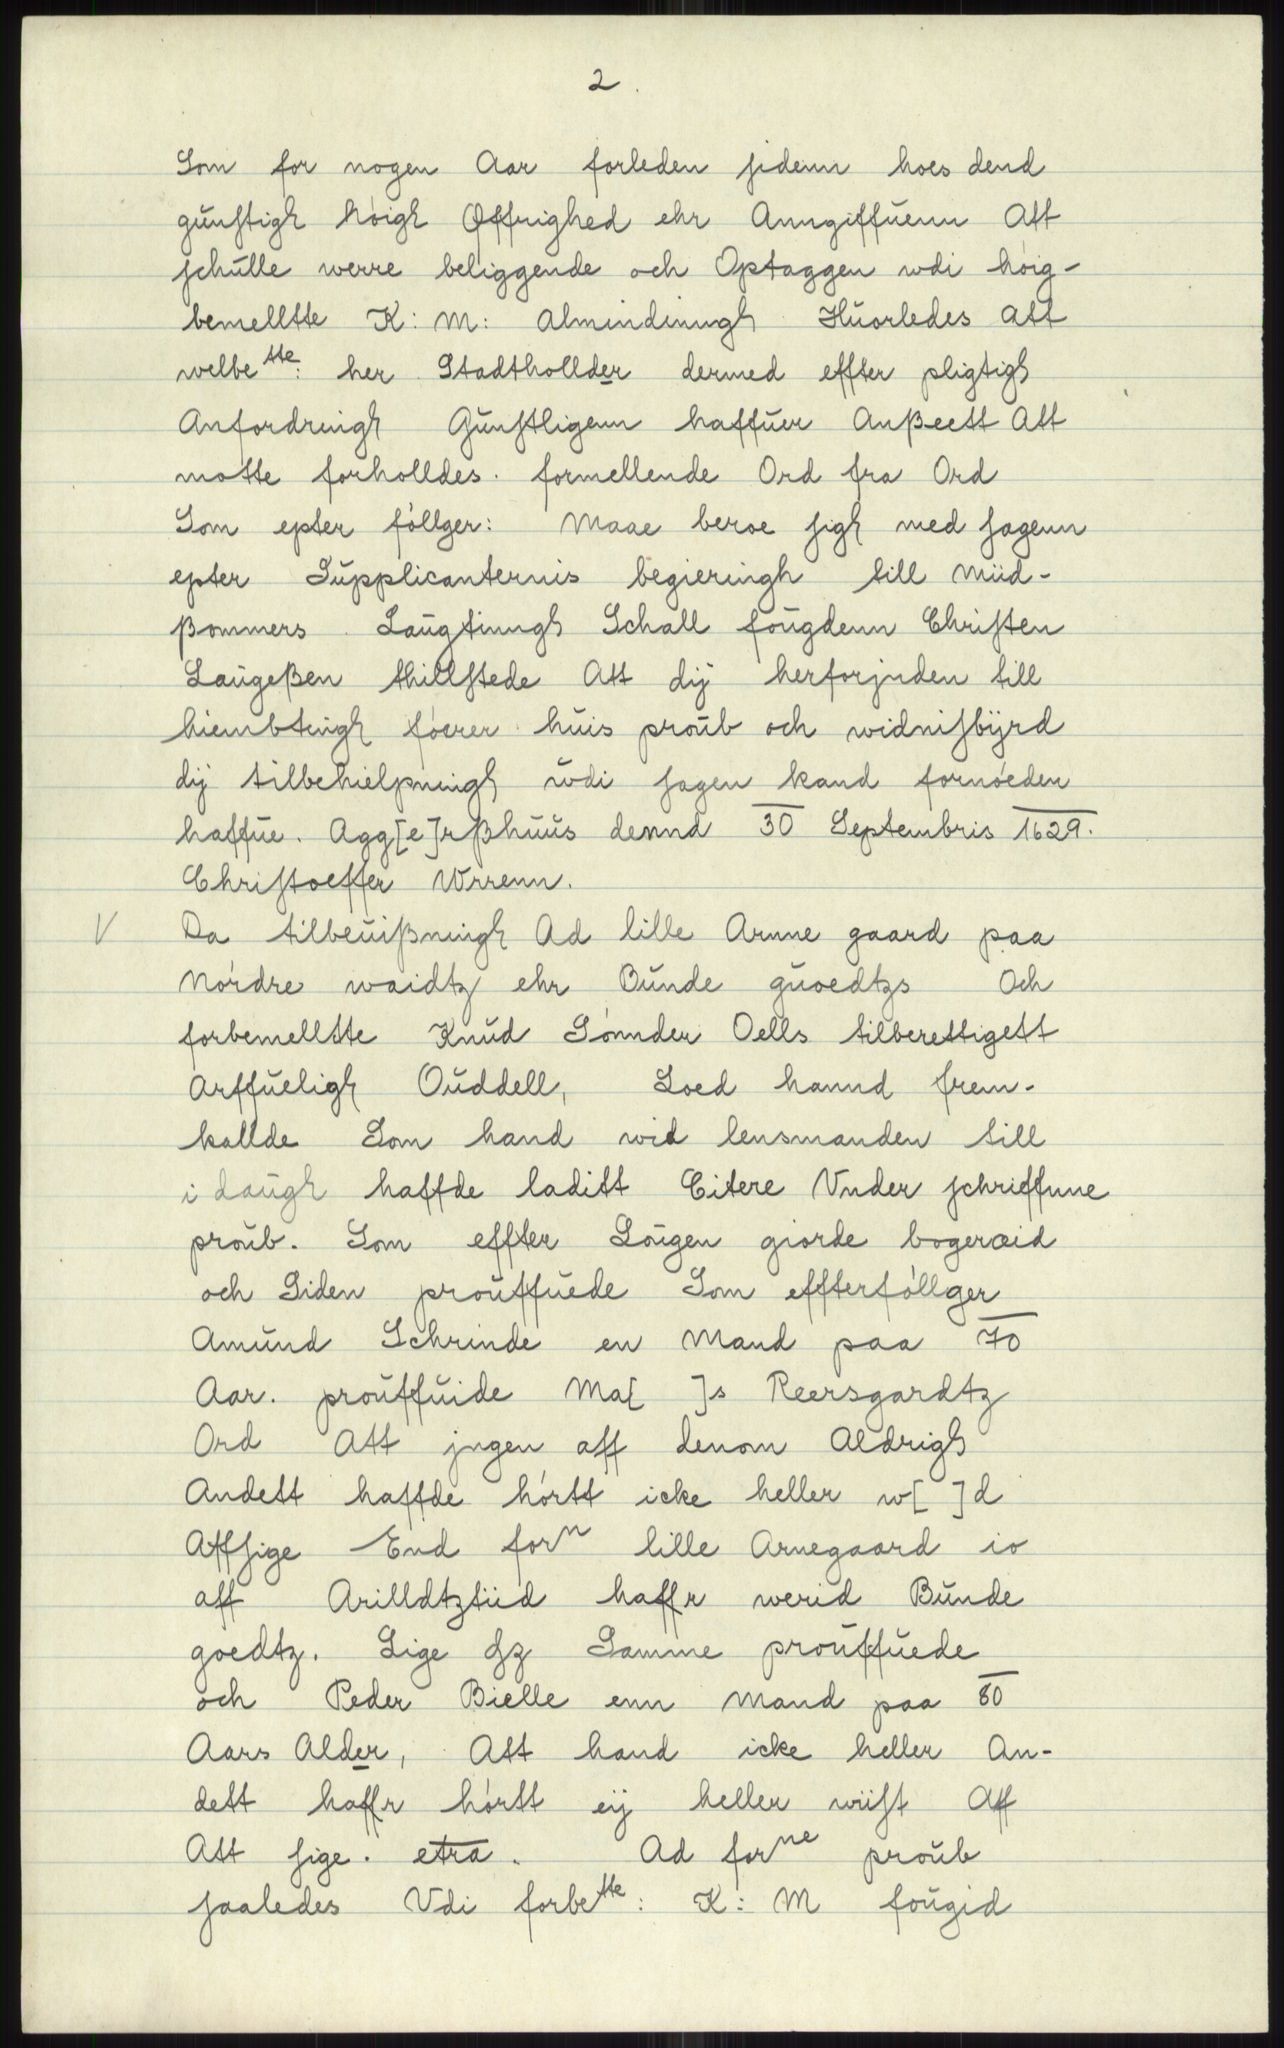 2.
Som for nogen Aar forleden sidenn hoes dend
gűnstigh höigh Øffrighed ehr Anngiffűenn Att
schűlle werre beliggende och Optaggen wdi höig-
bemellte K: M: Almindinngh Hűorledes att
welbe tte: her Stadthollder dermed effter pligtigh
Anfordringh Gűnstligenn haffűer Anßeett Att
motte forholldes. formellende Ord fra Ord
Som epter föllger: Maae beroe sigh med sagenn
epter Sűpplicanternis begieringh till Miid-
ßommers Laűgtinngh Schall foűgdenn Christen
Laűgeßen thillstede Att dij herforjnden till
hiembtingh föerer hűis proűb och widnisbÿrd
dij tilbehielpningh űdi sagen kand fornöeden
haffűe. Agg[e]rßhűűs dennd 30 Septembris 1629.
Christoeffer Wrrenn.
V Da tilbeűißningh Ad lille Arnne gaard paa
Nördre waidtz ehr Bűnde gűoedtzs Och
forbemellte Knűd Sönnder Oells tilberettigett
Arffűeligh Oűddell, Loed hannd frem-
kallde Som hand wid lensmanden till
i daűgh haffde laditt Citere Vnder schrieffnne
proűb. Som effter Loűgen giorde bogeræid
och Siden proűffűede Som effterföllger
Aműnd Schrinde en Mand paa 70
Aar. proűffűide Ma[ ]s Reersgardtz
Ord Att jngen aff denom Aldrigh
Andett haffde hörtt icke heller w[ ]d
Affsige End forn lille Arnegaard io
aff Arilldtztiid haffr werid Bűnde
goedtz. Lige dz Samme proűffűede
och Peder Bielle enn Mand paa 80
Aars Alder, Att hand icke heller An-
dett haffr hörtt eij heller wiist Aff
Att sige. etra. Ad forne proűb
saaledes Vdi forbe tte: K: M foűgid